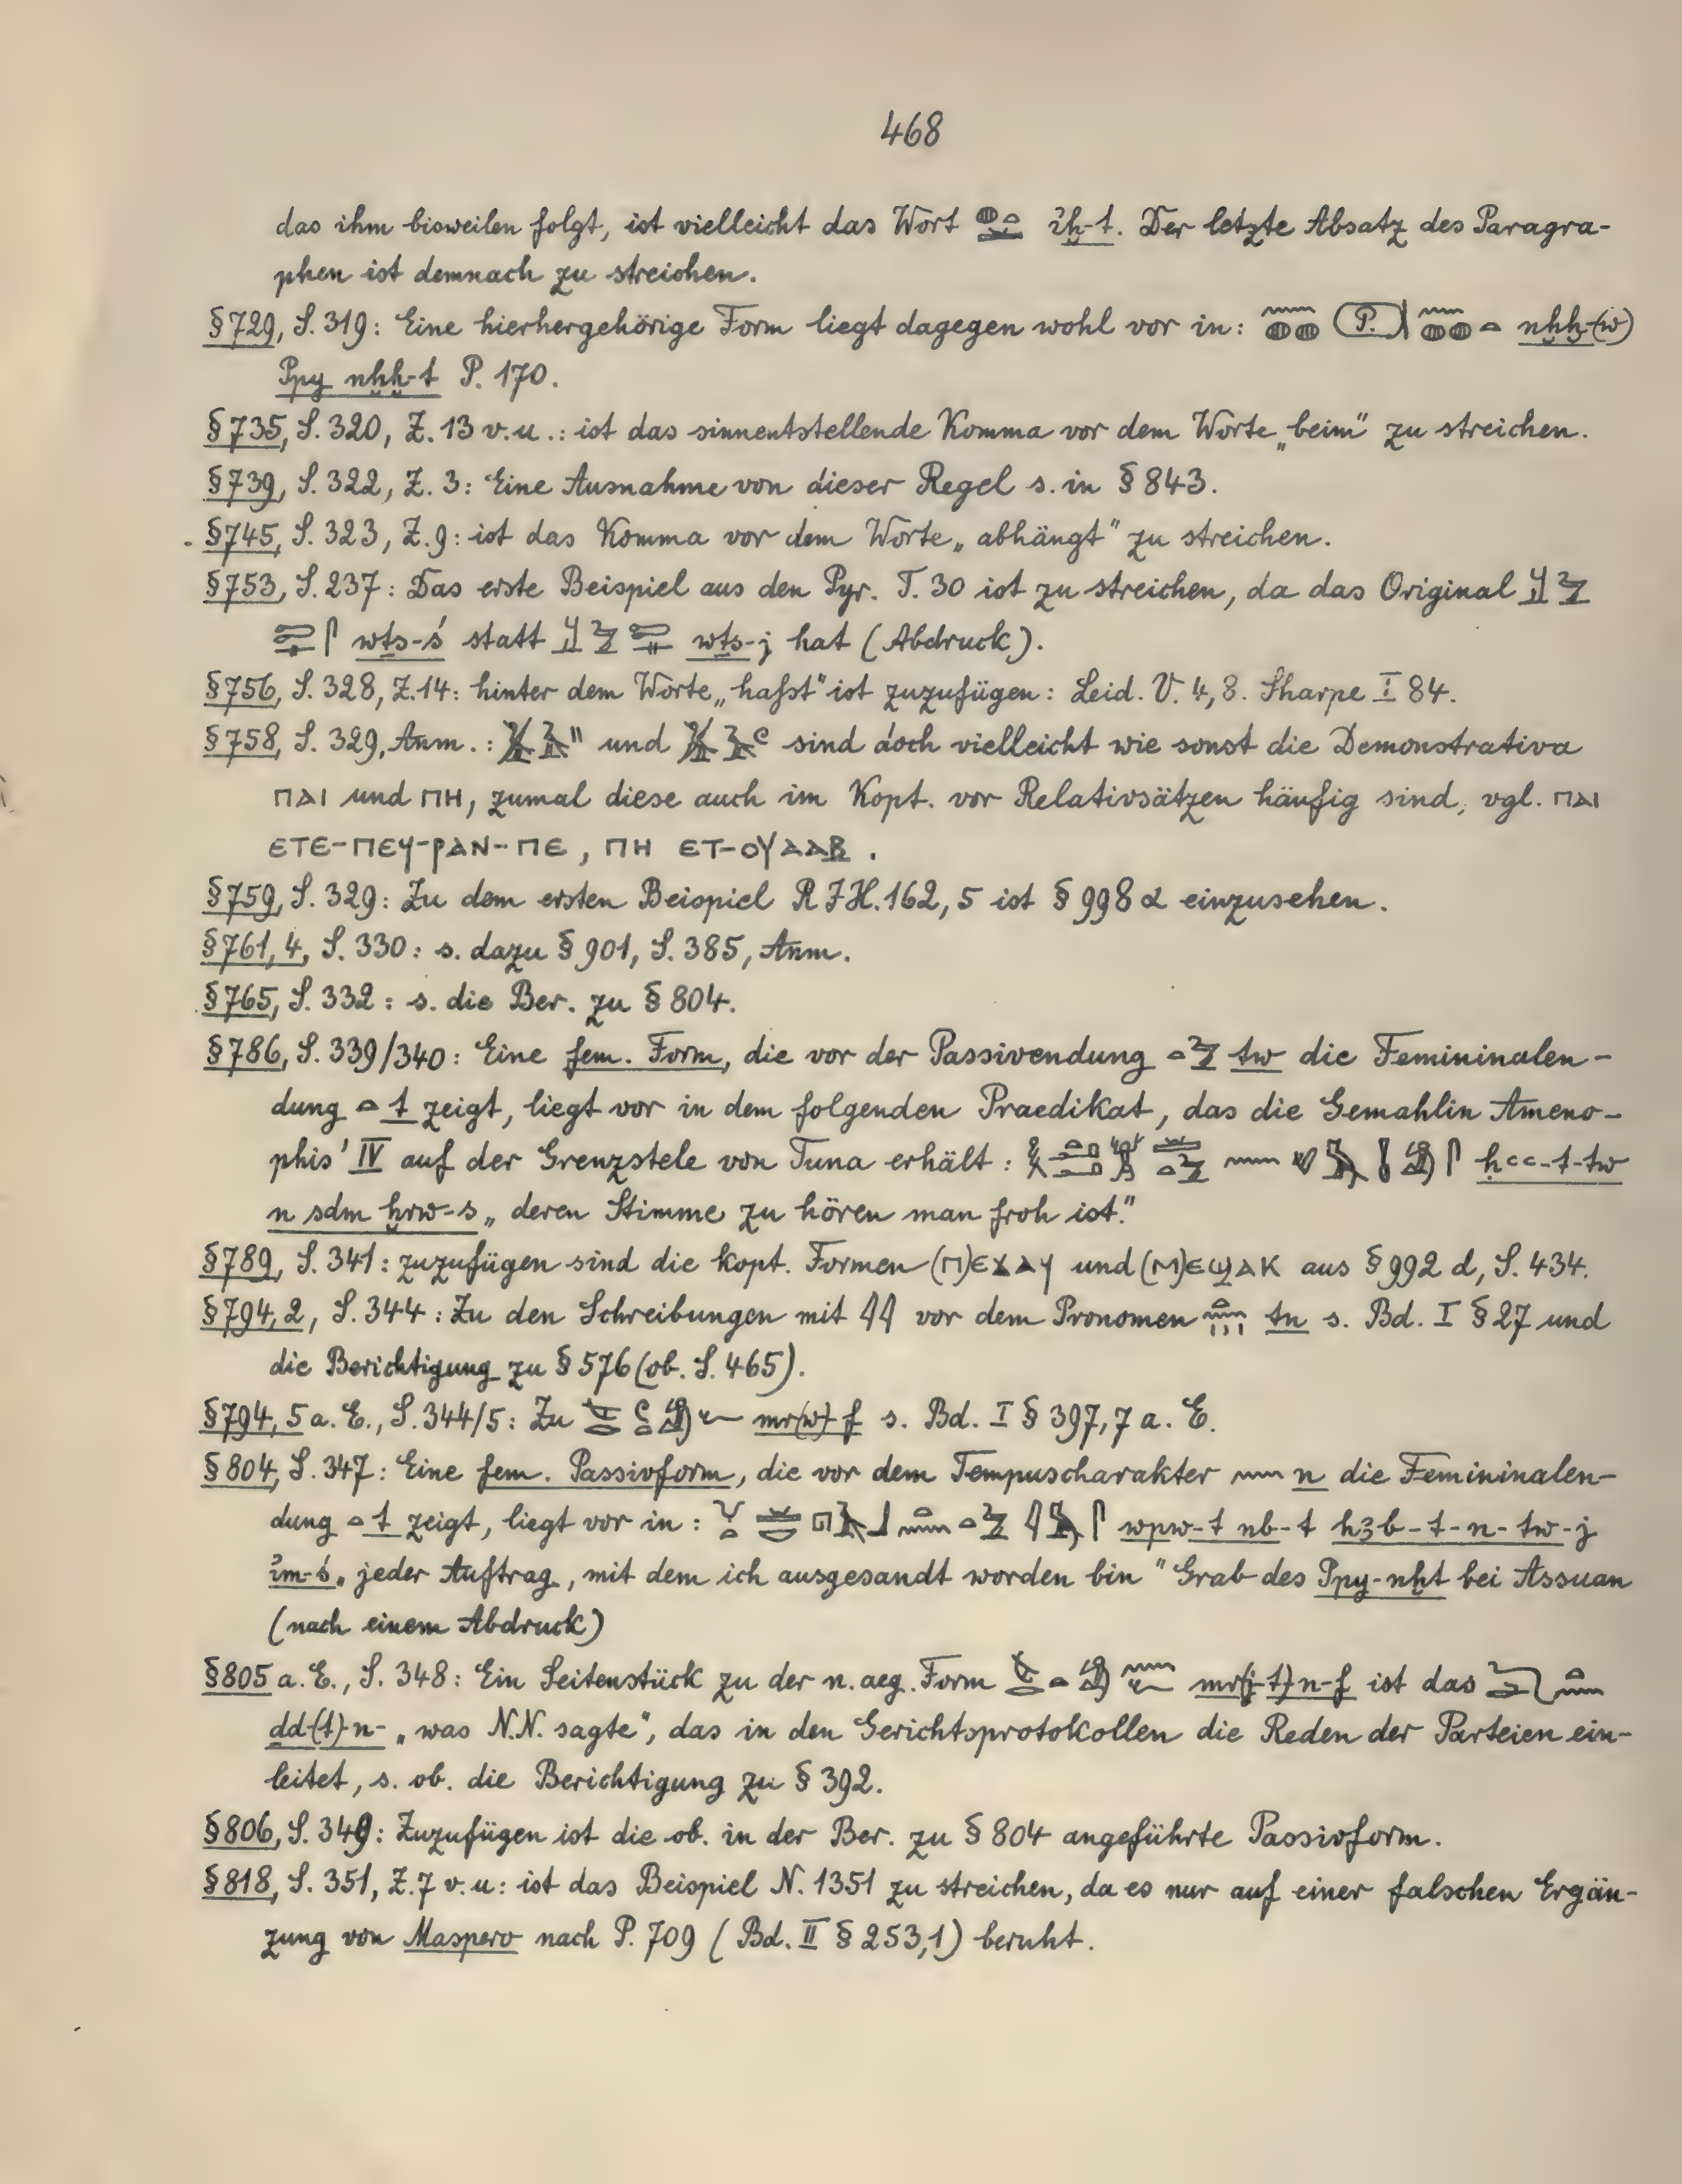 468
das ihm bisweilen folgt, ist vielleicht das Wort ꞽḫ-t. Der letzte Absatz des Paragra-
phen ist demnach zu streichen.
§729, S. 319: Eine hierhergehörige Form liegt dagegen wohl vor in: P. nḫḫ-(w)
Ppy nḫḫ-t P. 170.
§735, S. 320, Z. 13 v.u.: ist das sinnentstellende Komma vor dem Worte „beim" zu streichen.
§739, S. 322, Z. 3: Eine Ausnahme von dieser Regel s. in §843.
§745, S. 323, Z. 9: ist das Komma vor dem Worte „abhängt" zu streichen.
§753, S. 237: Das erste Beispiel aus den Pyr. T. 30 ist zu streichen, da das Original
wṯs-ś statt wṯs-j hat (Abdruck).
§756, S. 328, Z. 14: hinter dem Worte „haſst" ist zuzufügen: Leid. V. 4, 8. Sharpe I 84.
§758, S. 329, Anm.: und sind doch vielleicht wie sonst die Demonstrativa
ⲡⲁⲓ und ⲡⲏ, zumal diese auch im Kopt. vor Relativsätzen häufig sind, vgl. ⲡⲁⲓ
ⲉⲧⲉ-ⲡⲉϥ-ⲣⲁⲛ-ⲡⲉ, ⲡⲏ ⲉⲧ-ⲟⲩⲁⲁⲃ.
§759, S. 329: Zu dem ersten Beispiel R I H. 162, 5 ist §998 α einzusehen.
§761, 4, S. 330: s. dazu §901, S. 385, Anm.
§765, S. 332: s. die Ber. zu §804.
§786, S. 339/340: Eine fem. Form, die vor der Passivendung tw die Femininalen-
dung t zeigt, liegt vor in dem folgenden Praedikat, das die Gemahlin Ameno-
phis' IV auf der Grenzstele von Tuna erhält: ḥꜥꜥ-t-tw
n sdm ḫrw-s „deren Stimme zu hören man froh ist."
§789, S. 341: zuzufügen sind die kopt. Formen (ⲡ)ⲉϫⲁϥ und (ⲙ)ⲉϣⲁⲕ aus §992 d, S. 434.
§794, 2, S. 344: Zu den Schreibungen mit 𓇋𓇋 vor dem Pronomen tn s. Bd. I §27 und
die Berichtigung zu §576 (ob. S. 465).
§794, 5 a. E., S. 344/5: Zu mr(w)-f s. Bd. I §397, 7 a. E.
§804, S. 347: Eine fem. Passivform, die vor dem Tempuscharakter n die Femininalen-
dung t zeigt, liegt vor in: wpw-t nb-t hꜣb-t-n-tw-j
ꞽm-ś „jeder Auftrag, mit dem ich ausgesandt worden bin" Grab des Ppy-nḫt bei Assuan
(nach einem Abdruck)
§805 a. E., S. 348: Ein Seitenstück zu der n. aeg. Form mr(j-t)-n-f ist das
dd-(t)-n- „was N.N. sagte", das in den Gerichtsprotokollen die Reden der Parteien ein-
leitet, s. ob. die Berichtigung zu §392.
§806, S. 349: Zuzufügen ist die ob. in der Ber. zu §804 angeführte Passivform.
§818, S. 351, Z. 7 v. u: ist das Beispiel N. 1351 zu streichen, da es nur auf einer falschen Ergän-
zung von Maspero nach P. 709 (Bd. II §253,1) beruht.